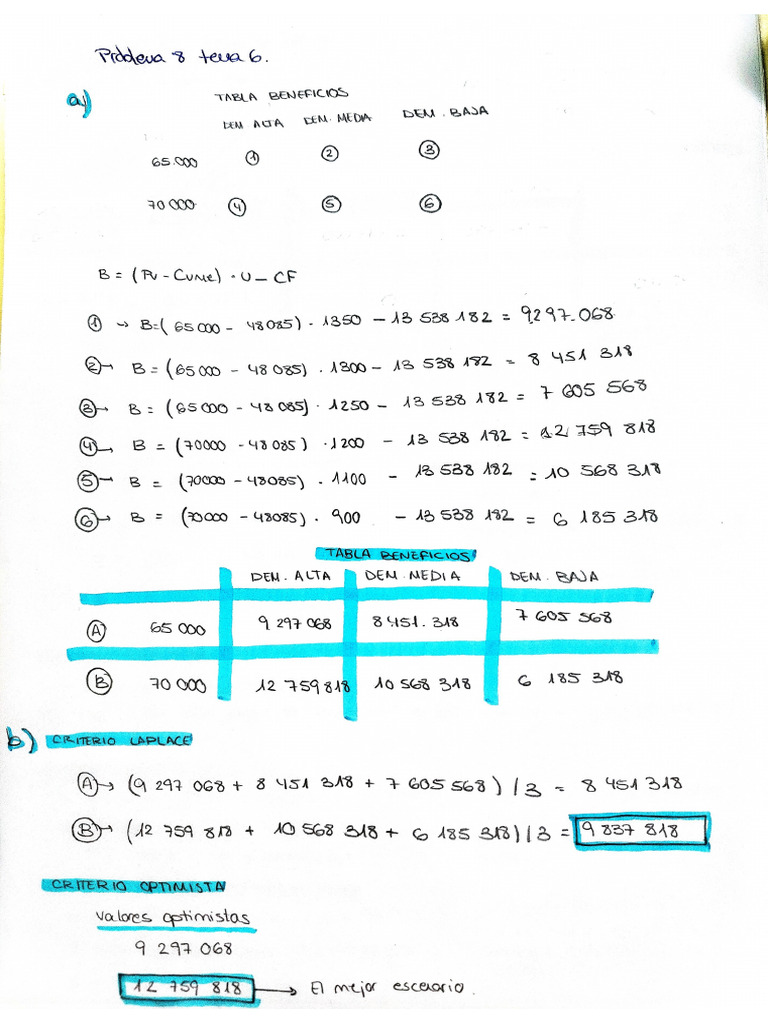 Problema 8 tema 6.
a)
TABLA BENEFICIOS
DEM ALTA DEM. MEDIA DEM. BAJA
65.000 ① ② ③
70 000 ④ ⑤ ⑥
B = (Pv - Cvme) · U - CF
① → B=(65 000 - 48085) · 1350 - 13 538 182 = 9.297.068
② → B = (65 000 - 48 085) · 1300 - 13 538 182 = 8 451 318
③ → B = (65 000 - 48 085) · 1250 - 13 538 182 = 7 605 568
④ → B = (70000 - 48 085) · 1200 - 13 538 182 = 12 759 818
⑤ → B = (70000 - 48085) · 1100 - 13 538 182 = 10 568 318
⑥ → B = (70 000 - 48085) · 900 - 13 538 182 = 6 185 318
TABLA BENEFICIOS
DEM. ALTA DEM. MEDIA DEM. BAJA
Ⓐ 65 000 9 297 068 8 451. 318 7 605 568
Ⓑ 70 000 12 759 818 10 568 318 6 185 318
b) CRITERIO LAPLACE
Ⓐ → (9 297 068 + 8 451 318 + 7 605 568) / 3 = 8 451 318
Ⓑ → (12 759 818 + 10 568 318 + 6 185 318) / 3 = 9 837 818
CRITERIO OPTIMISTA
valores optimistas
9 297 068
12 759 818 → El mejor escenario.